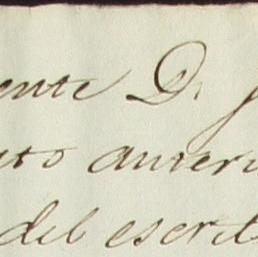 ente D. J
uto anteri
del escrit